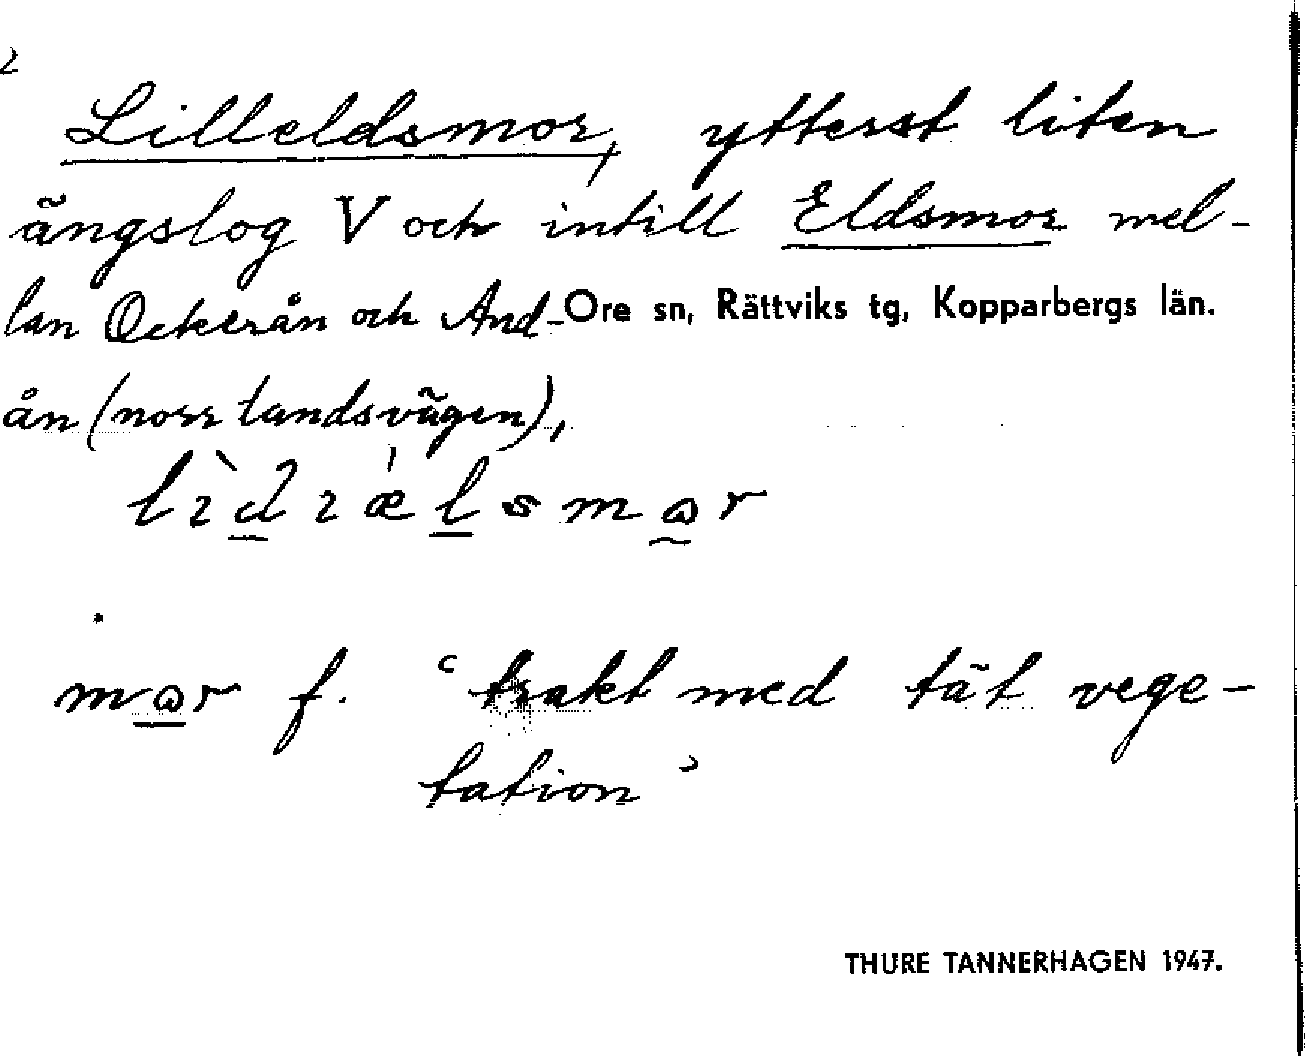 2
Lilleldsmor, ytterst liten
ängslog V och intill Eldsmor mel-
lan Ockerån och And- Ore sn, Rättviks tg, Kopparbergs län.
ån (norrlandsvägen),
mɷr f. ‘trakt med tät vege-
tation’
THURE TANNERHAGEN 1947.